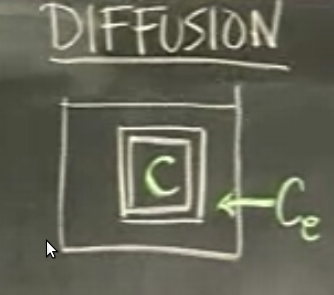 DIFFUSION
C
Ce